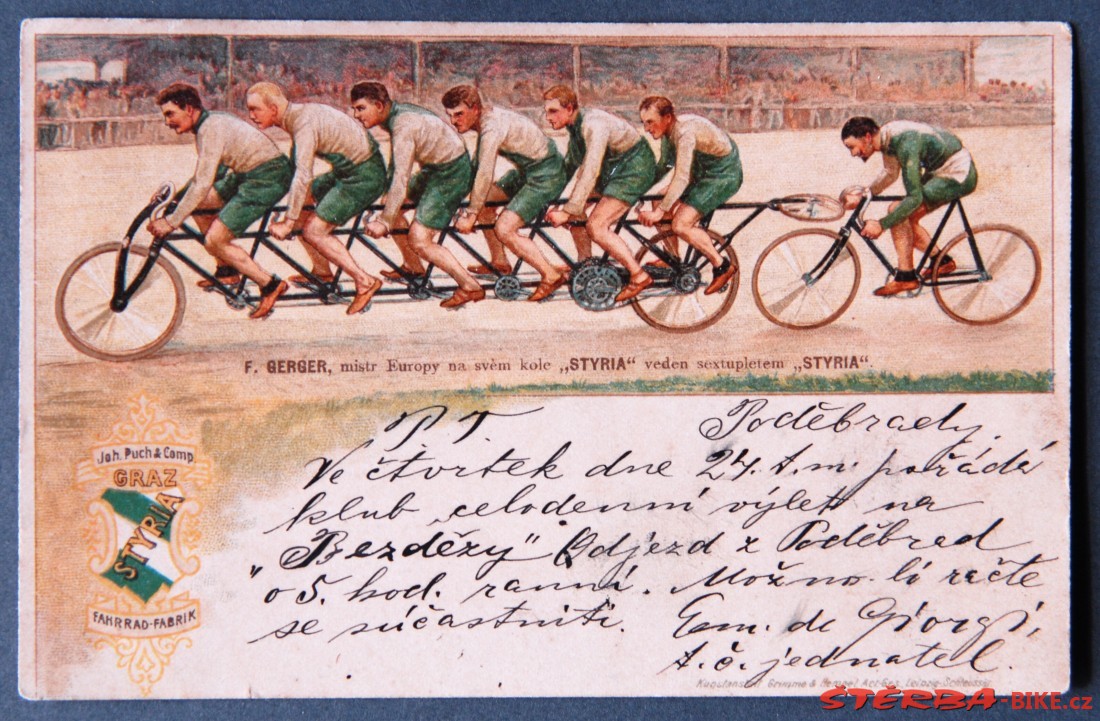 F. GERGER, mistr Europy na svém kole „STYRIA“ veden sextupletem „STYRIA“.
Joh. Puch & Comp.
GRAZ
STYRIA
FAHRRAD-FABRIK
P. T. Poděbrady,
Ve čtvrtek dne 24. t. m. pořádá
klub celodenní výlet na
„Bezdězy“ Odjezd z Poděbrad
o 5. hod. ranní. Možno-li račte
se súčastniti. Em. de Giorgi,
t. č. jednatel.
Kunstanstalt Grimme & Hempel Act-Ges. Leipzig-Schleussig
ŠTĚRBA-BIKE.cz